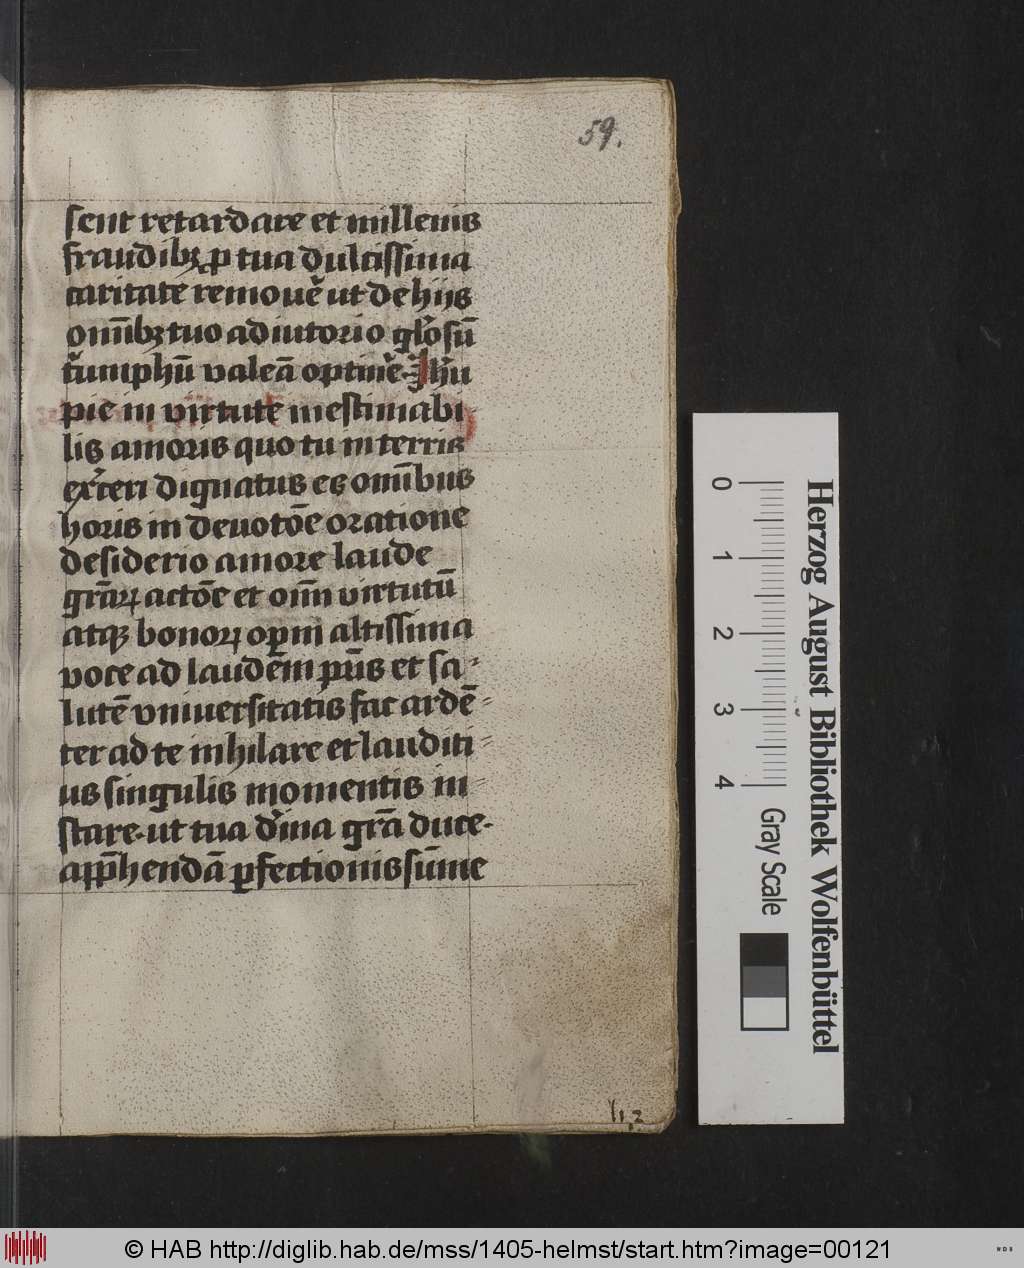 59.
sent retardare et millenis
fraudibꝫ ꝑ tua dulcissima
caritate remoue᷑ ut de hijs
om̄ibꝫ tuo adiutorio gl'osū
t'umphū valeā optine᷑. Ihu᷑
pie in virtute inestimabi
lis amoris quo tu in terris
ex᷑ceri dignatus es om̄ibus
horis in deuotōe oratione
desiderio amore laude
grāꝝ actōe et om̄i virtutū
atqꝫ bonoꝝ oꝑm altissima
voce ad laudēm pr̄is et sa-
lutē vniuersitatis fac ardē-
ter ad te inhilare et lauditi-
us singulis momentis in-
stare. ut tua d'ina gr̄a duce.
app̄hendā ꝑfectionis sūme
Herzog August Bibliothek Wolfenbüttel
0 1 2 3 4 Gray Scale
© HAB http://diglib.hab.de/mss/1405-helmst/start.htm?image=00121